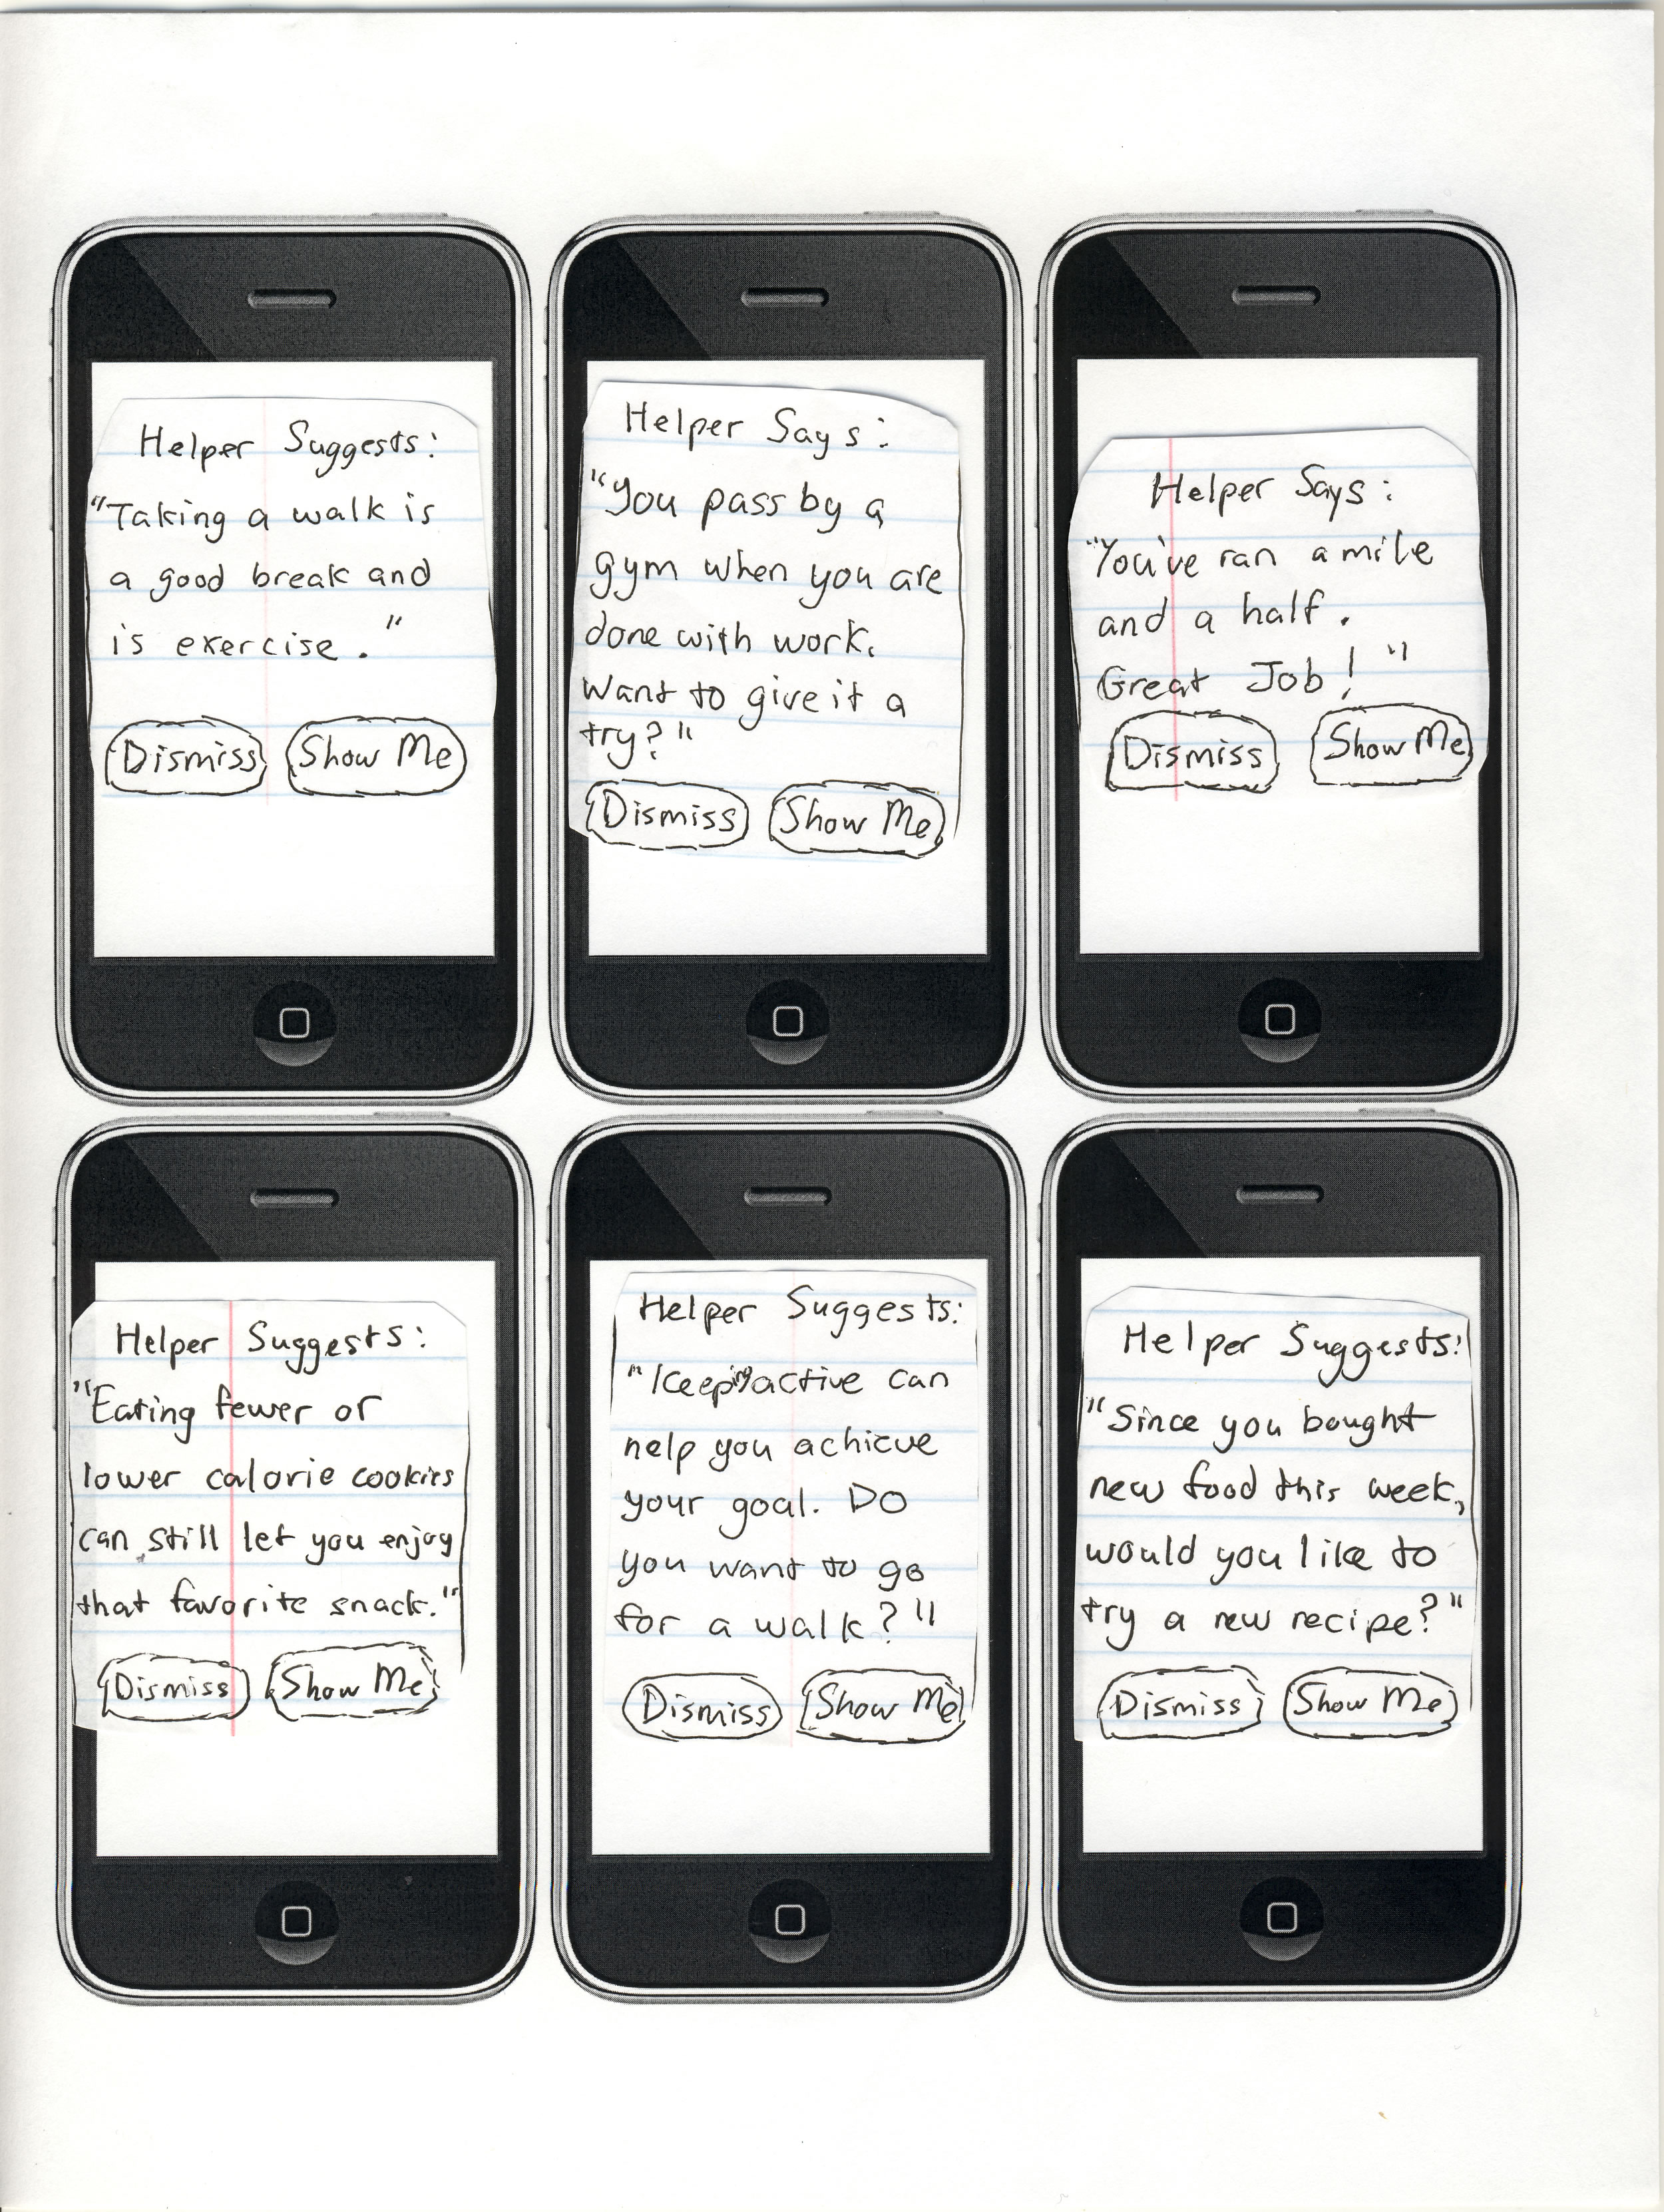 Helper Suggests:
"Taking a walk is
a good break and
is exercise."
Dismiss Show Me
Helper Says:
"You pass by a
gym when you are
done with work.
Want to give it a
try?"
Dismiss Show Me
Helper Says:
"You've ran a mile
and a half.
Great Job!"
Dismiss Show Me
Helper Suggests:
"Eating fewer or
lower calorie cookies
can still let you enjoy
that favorite snack."
Dismiss Show Me
Helper Suggests:
"Keeping active can
help you achieve
your goal. Do
you want to go
for a walk?"
Dismiss Show Me
Helper Suggests:
"Since you bought
new food this week,
would you like to
try a new recipe?"
Dismiss Show Me